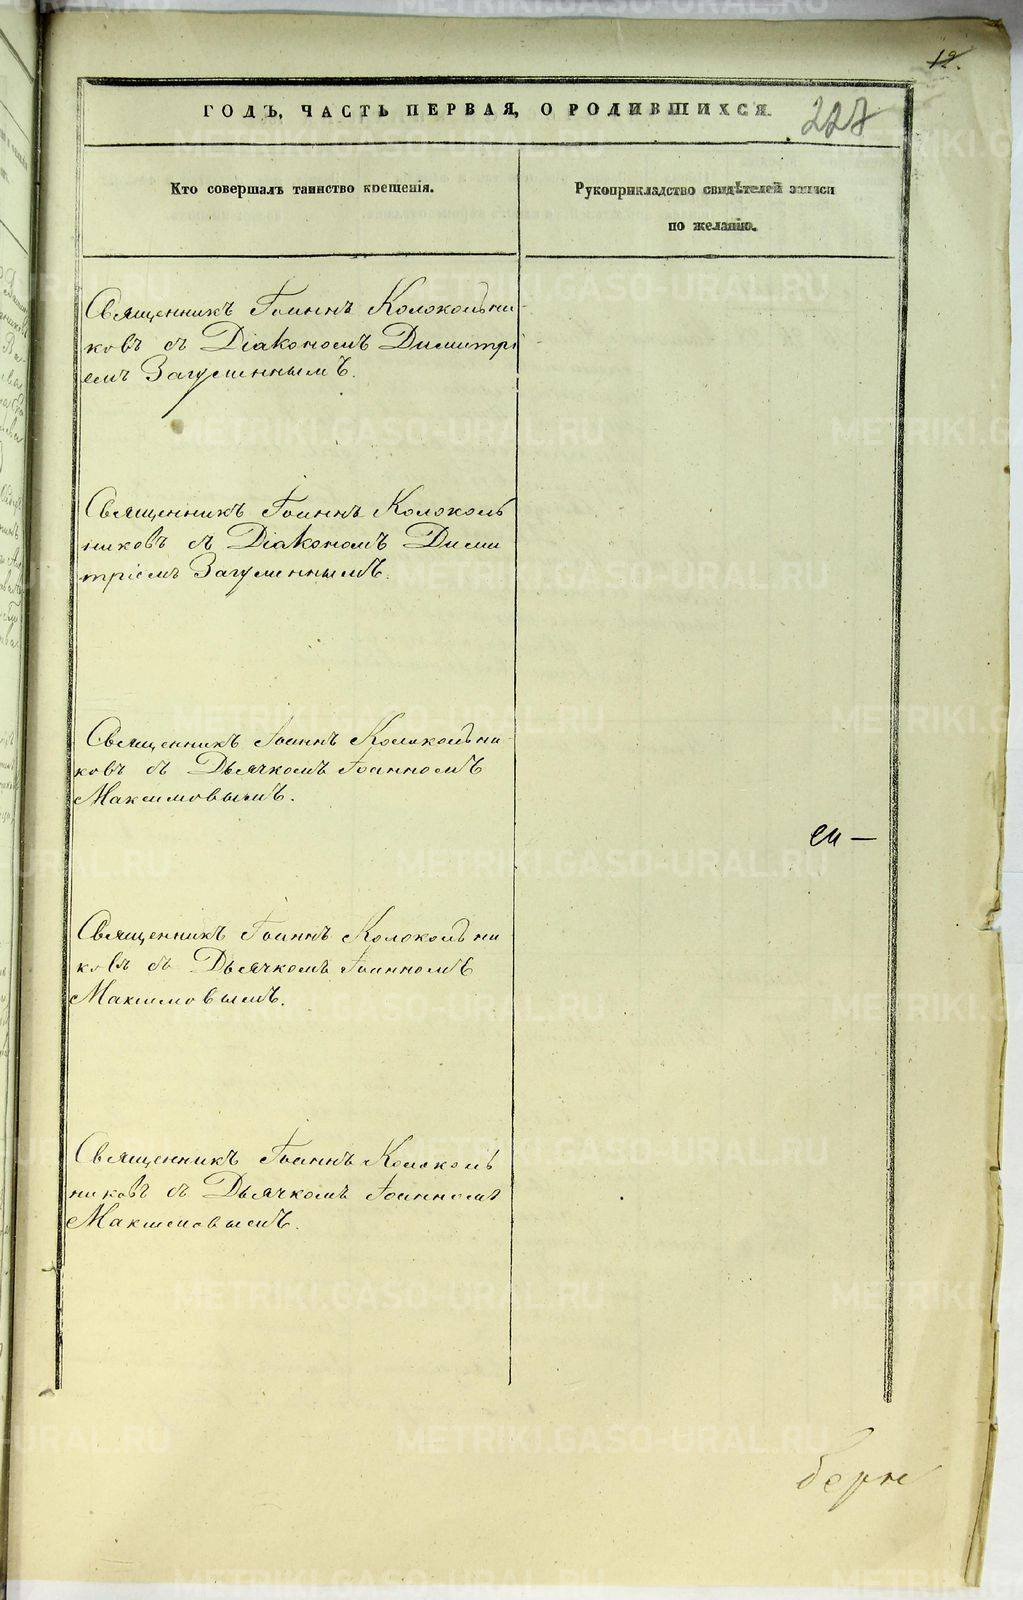 12.
ГОДЪ, ЧАСТЬ ПЕРВАЯ, О РОДИВШИХСЯ.
227
Кто совершалъ таинство крещенія.
Рукоприкладство свидѣтелей записи
по желанію.
Священникъ Іоаннъ Колокольни-
ковъ съ Діакономъ Димитрі
емъ Загуменнымъ.
Священникъ Іоаннъ Колоколь
никовъ съ Діакономъ Дими
тріемъ Загуменнымъ.
Священникъ Іоаннъ Колокольни-
ковъ съ Дьячкомъ Іоанномъ
Максимовымъ.
Священникъ Іоаннъ Колокольни
ковъ съ Дьячкомъ Іоанномъ
Максимовымъ.
Священникъ Іоаннъ Коломоль
никовъ съ Дьячкомъ Іоанномъ
Максимовымъ.
METRIKI.GASO-URAL.RU